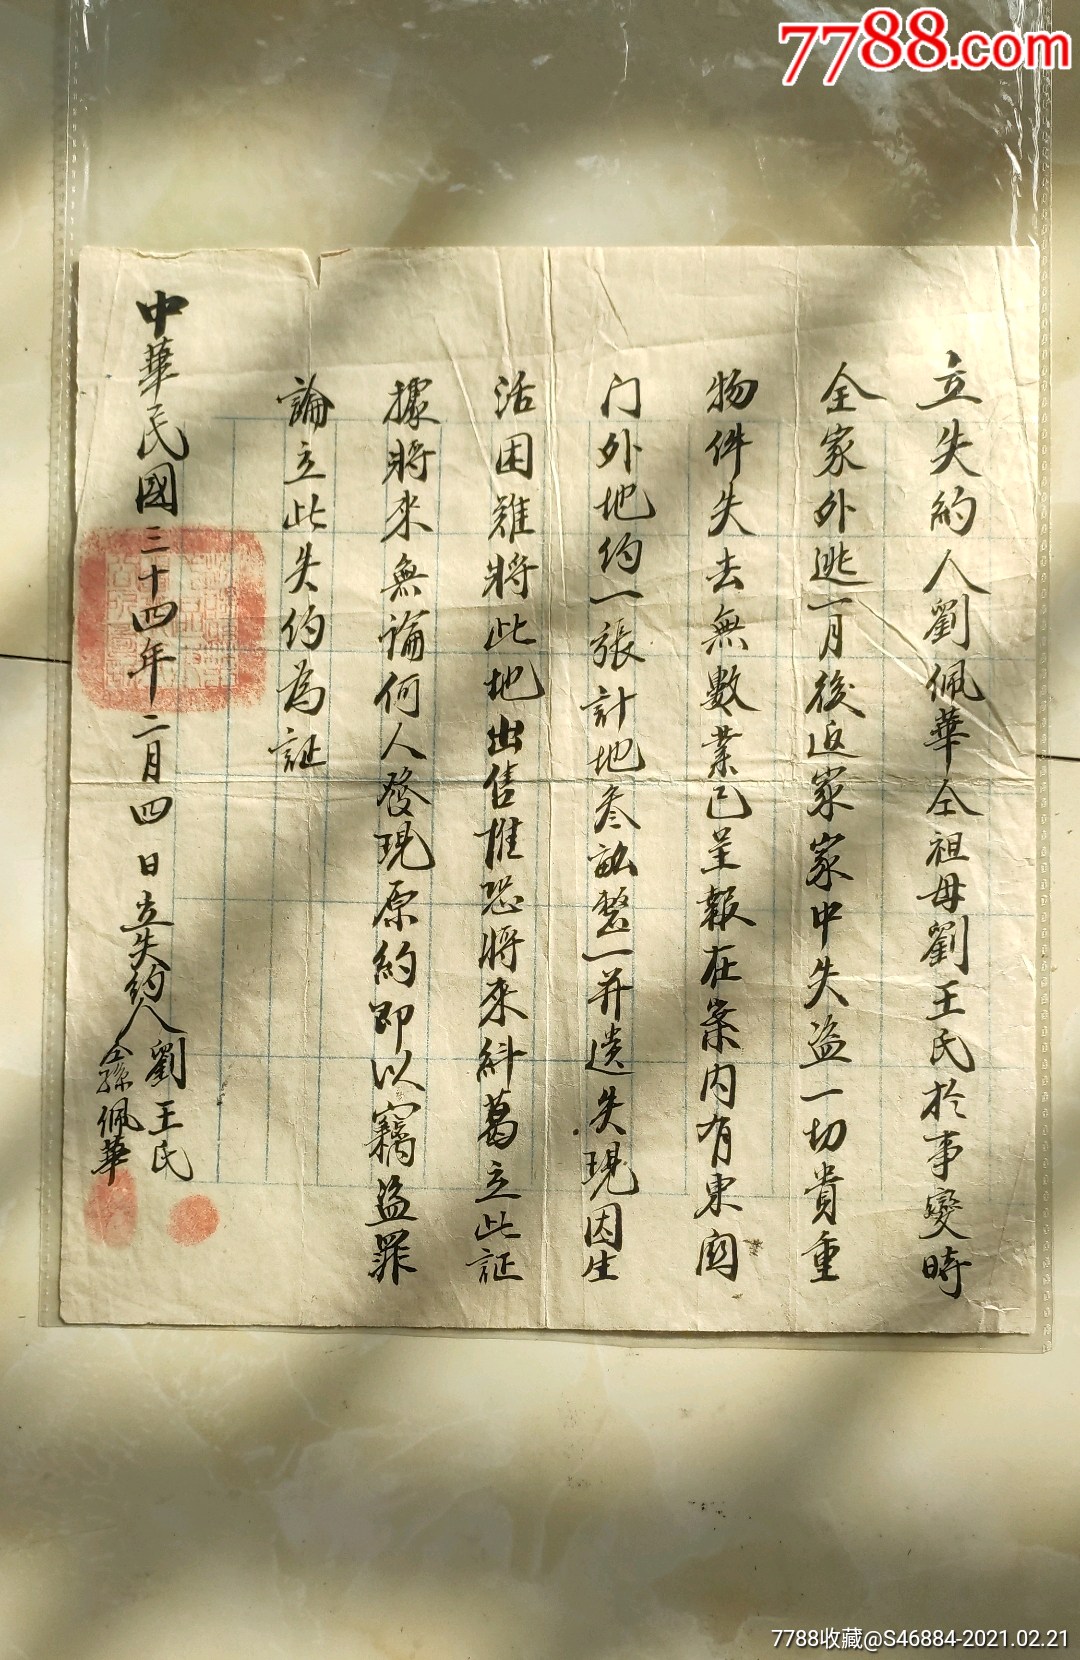 7788.com
立失約人劉佩華仝祖母劉王氏於事變時
全家外逃一月後返家家中失盜一切貴重
物件失去無數業已呈報在案内有東関
门外地约一張計地叁畝整一并遗失現因生
活困難將此地出售惟恐將來糾葛立此証
據將來無論何人發現原約即以竊盜罪
論立此失约為証
中華民國三十四年二月四日立失約人劉王氏
仝孫佩華
7788收藏@S46884-2021.02.21